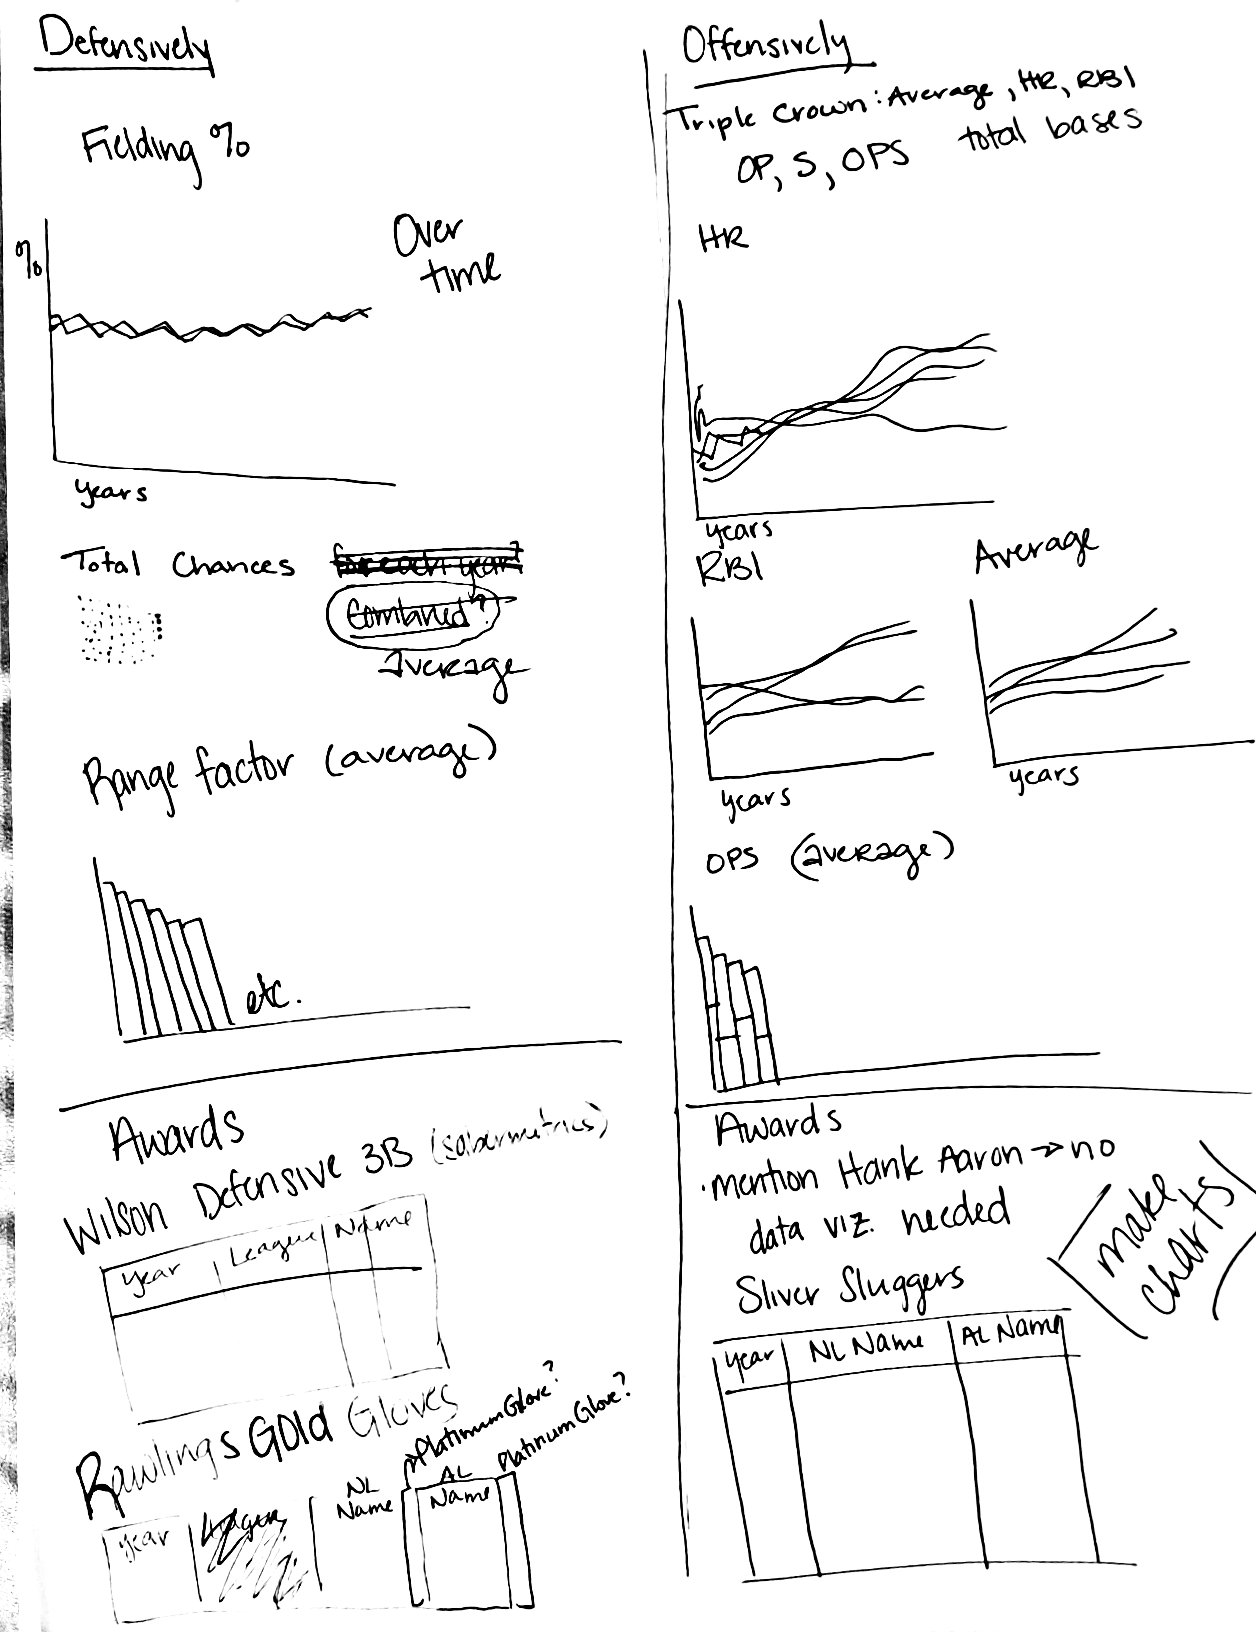 Defensively
Fielding %
%
Over
time
years
Total Chances for each year?
Combined?
average
Range factor (average)
etc.
Awards
Wilson Defensive 3B (sabermetrics)
Year League Name
Rawlings Gold Gloves
Year League NL Name Platinum Glove? AL Name Platinum Glove?
Offensively
Triple Crown: Average, HR, RBI
OP, S, OPS total bases
HR
years
RBI
years
Average
years
OPS (average)
Awards
· mention Hank Aaron → no
data viz. needed
make
charts
Sliver Sluggers
Year NL Name AL Name